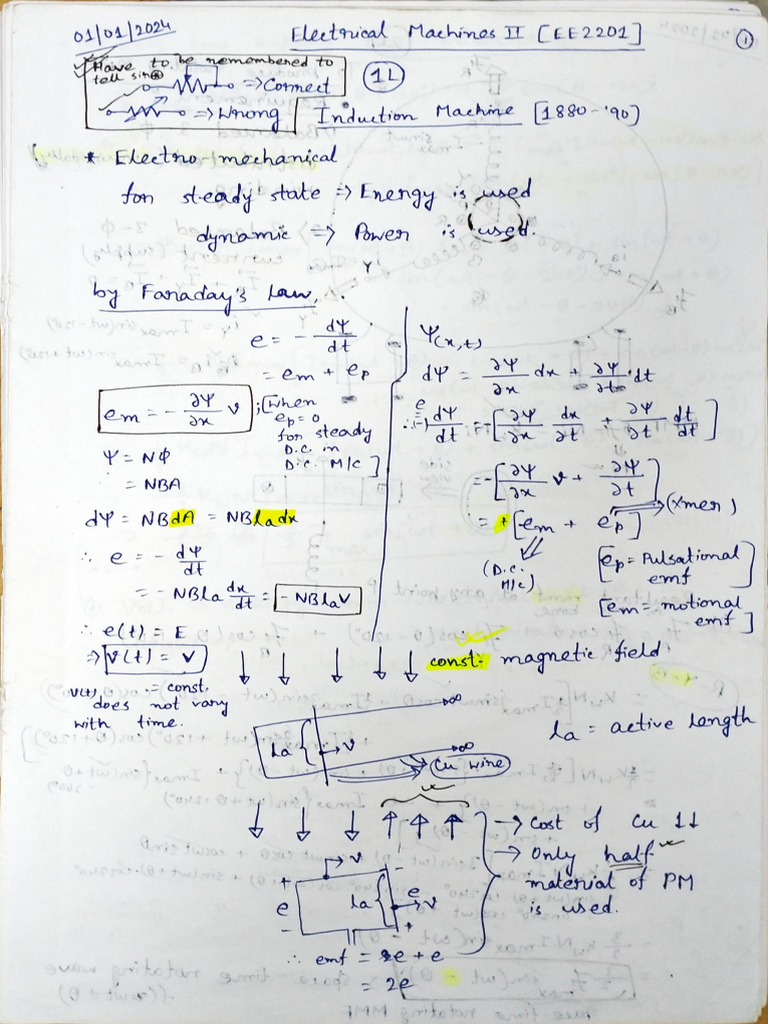 01/01/2024
Electrical Machines II [EE2201]
1
Have to be remembered to
tell sir
⇒ Correct
⇒ Wrong
1L
Induction Machine [1880-'90]
* Electro-mechanical
for steady state ⇒ Energy is used
dynamic ⇒ Power is used.
by Faraday's Law,
e = - dΨ/dt
= em + ep
em = - ∂Ψ/∂x v ; [When
ep = 0
for steady
D.C. in
D.C. M/c]
Ψ = NΦ
= NBA
dΨ = NBdA = NBla dx
∴ e = - dΨ/dt
= - NBla dx/dt = - NBlaV
∴ e(t) = E
⇒ v(t) = V
v(t) = const.
does not vary
with time.
Ψ(x,t)
dΨ = ∂Ψ/∂x dx + ∂Ψ/∂t dt
∴ e = - dΨ/dt = -[∂Ψ/∂x dx/dt + ∂Ψ/∂t dt/dt]
= -[∂Ψ/∂x v + ∂Ψ/∂t]
= +[em + ep] (Xmer)
(D.C.
M/c)
[ep = Pulsational
emf]
[em = motional
emf]
const. magnetic field
→∞
la
→v
→∞
Cu wire
la = active length
→ Cost of Cu ↓↓
→ Only half
material of PM
is used.
→v
+
e
-
la
-
e
→v
+
∴ emf = e + e
= 2e